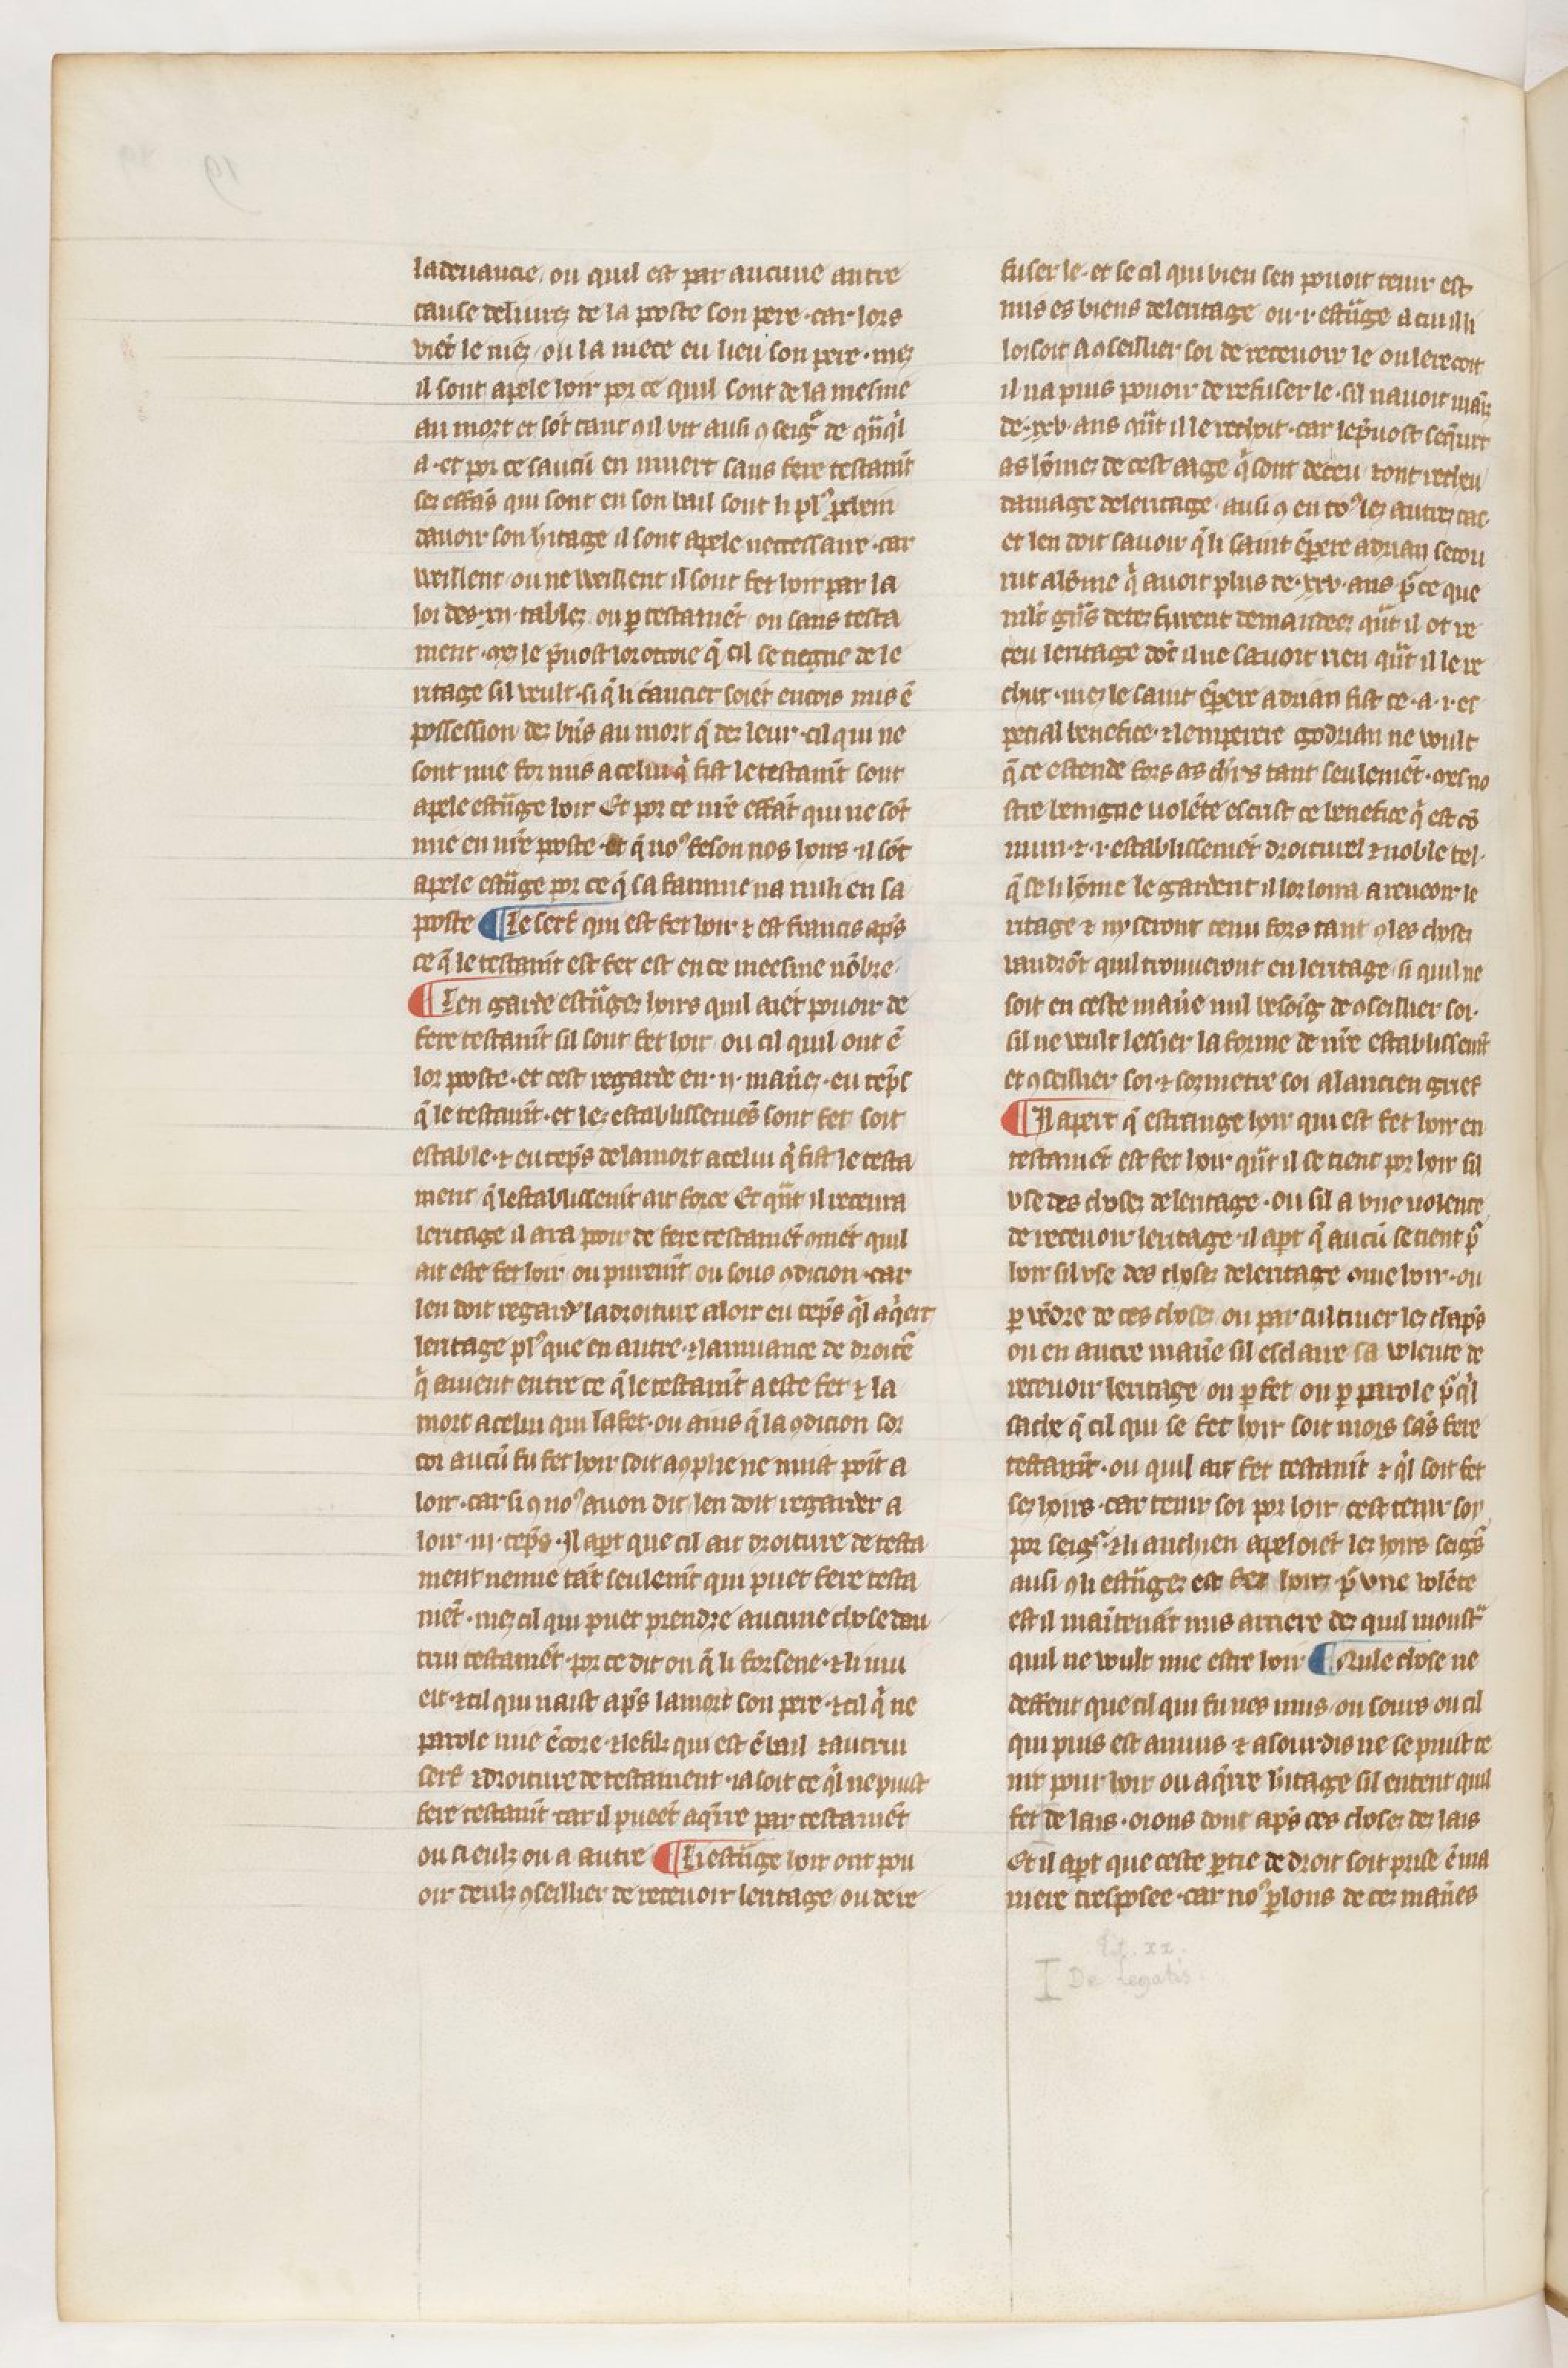 ladeuancie ou quil est par aucune autre
cause deliurez de la poste son pere · car lors
viēt le niez ou la niece en lieu son pere · mez
il sont apele loir por ce quil sont de la mesme
au mort et sōt tant ꝯ il vit ausi ꝯ seigr̄ de qͣnqͥl
a · et por ce saucū en muert sans fere testamīt
sez effās qui sont en son bail sont li plꝰ prchein
dauoir son hītage il sont apele neccessaire · car
veillent ou ne veillent il sont fet hoir par la
loi des · xij · tablez ou ꝑ testamēt ou sans testa
ment · mez le p̄uost lor ottroie q̄ cil se tiegne de le
ritage sil veult · si q̄ li cāncier soiēt encois mis ē
possession dez biēs au mort q̄ dez leur · cil qui ne
sont mie sor mis a celui qͥ fist le testamīt sont
apele estāge hoir Et por ce nr̄e effāt qui ne sōt
mie en nr̄e poste et q̄ noꝰ feson nos hoirs · il sōt
apele estāge por ce q̄ la famme na nuli en sa
poste ¶ Le serf qui est fet hoir ⁊ est francis ap̄s
ce q̄ le testamīt est fet est en ce meesme nōbre ·
¶ Len garde estāgez hoirs quil aiēt pouoir de
fere testamīt sil sont fet hoir ou cil quil ont ē
lor poste · et cest regarde en · ij · manīez · en tēps
q̄ le testamīt · et lez establissemēs sont fet soit
estable · ⁊ en tēps de la mort a celui qͥ fist le testa
ment q̄ lestablissemīt ait force Et qͣnt il receura
leritage il ara pouir de fere testamēt ꝯmēt quil
ait este fet hoir ou puremīt ou sous ꝯdicion · car
len doit regardr̄ la droiture a loir en tēps qͥl aqͥert
leritage plꝰ que en autre · ⁊ la muance de droitr̄e
qͥ auient entre ce q̄ le testamīt a este fet ⁊ la
mort a celui qui la fet · ou ains q̄ la ꝯdicion sor
coi aucū fu fet hoir soit aꝯplie ne nuist poīt a
loir · car si ꝯ noꝰ auon dit len doit regarder a
loir · iij · tēps · Il apt que cil ait droiture de testa
ment nemie tāt seulemīt qui puet fere testa
mēt · mez cil qui puet prendre aucune chose dau
trui testamēt · por ce dit on q̄ li forsene · ⁊ li mu
eit · ⁊ cil qui naist ap̄s la mort son pere · ⁊ cil qͥ ne
parole mie ēcore · ⁊ le filz qui est ē bail ⁊ autrui
serf ⁊ droiture de testament · ia soit ce qͥl ne puist
fere testamīt car il pueēt aqͥrre par testamēt
ou a eulz ou a autre ¶ Li estāge hoir ont pou
oir deulz ꝯseillier de receuoir leritage ou de re
fuser le · et se cil qui bien sen pouoit tenir est
mis es biens de leritage ou · i · estāge a cui il li
loisoit a ꝯseillier soi de receuoir le ou le recoit
il na puis pouoir de refuser le · sil nauoit mains
de · xxv · ans qͣnt il le rechoit · car le p̄uost sequrt
as hōmez de cest aage qͥ sont deceu ⁊ ont recheu
damage de leritage · ausi ꝯ en toꝰ lez autrez cas ·
et len doit sauoir q̄ li saint ēpere adrian secou
rut a lōme qͥ auoit plus de · xxv · ans pͬ ce que
mīlt grās detez furent demandeez qͣnt il ot re
ceu leritage dōt il ne sauoit rien qͣnt il le re
chut · mez le saint ēpere adrian fist ce · a · i · es
pecial benefice · ⁊ lemperere godrian ne voult
q̄ ce estende fors as chr̄s tant seulemēt · mes no
stre benigne volēte escust ce benefice qͥ est cō
mun · ⁊ · i · establissemēt droiturel ⁊ noble tel ·
q̄ se li hōme le gardent il lor loira a receuoir le
ritage ⁊ ny seront tenu fors tant ꝯ les chosez
vaudrōt quil trouueront en leritage · si quil ne
soit en ceste manīe nul besoīg de ꝯseillier soi ·
sil ne veult lessier la forme de nr̄e establissemīt
et ꝯseillier soi · ⁊ sozmetre soi a lancien grief
¶ Il apert q̄ estrange hoir qui est fet hoir en
testamēt est fet hoir qͣnt il se tient por hoir sil
vse des chosez de leritage · ou sil a vne volente
de receuoir leritage · il apt q̄ aucū se tient pͬ
hoir sil vse des chosez de leritage ꝯme hoir · ou
ꝑ vēdre de ces chosez ou par cultiuer lez chāps
ou en autre manīe sil esclaire sa volente de
receuoir leritage ou ꝑ fet ou ꝑ parole pͬ qͥl
sache q̄ cil qui se fet hoir soit mors sās fere
testamīt · ou quil ait fet testamīt ⁊ qͥl soit fet
sez hoirs · car tenir soi por hoir cest tenir soy
por seigr̄ · ⁊ li anchien apeloiēt lez hoirs seigr̄s
ausi ꝯ li estāgez est fet hoirz pͬ vne volēte
est il maītenāt mis arriere dez quil monstͬ
quil ne voult mie estre hoir ¶ Nule chose ne
deffent que cil qui fu nes mus ou sours ou cil
qui puis est amuis ⁊ asourdis ne se puist te
nir pour hoir ou aqͥrre hītage sil entent quil
fet de lais · oions dont ap̄s ces chosez dez lais
Et il apt que ceste ꝑtie de droit soit prise ē ma
niere tresposee · car noꝰ ꝑlons de cez manīes
Tit. xx.
De legatis.